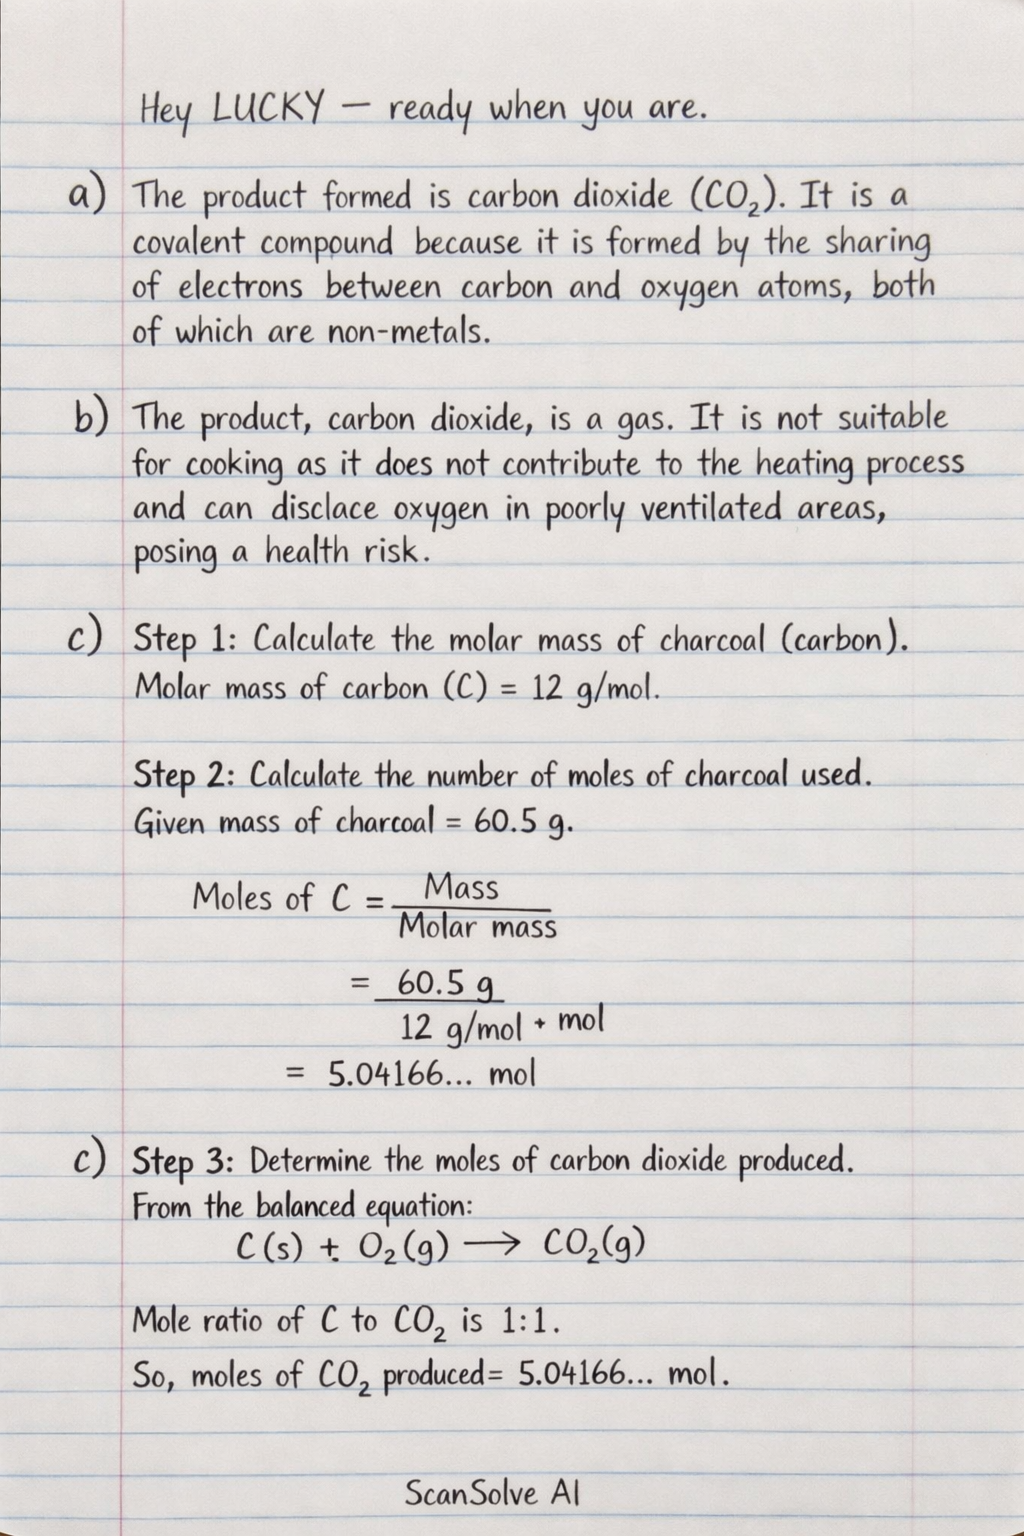 Hey LUCKY — ready when you are.
a) The product formed is carbon dioxide (CO₂). It is a
covalent compound because it is formed by the sharing
of electrons between carbon and oxygen atoms, both
of which are non-metals.
b) The product, carbon dioxide, is a gas. It is not suitable
for cooking as it does not contribute to the heating process
and can disclace oxygen in poorly ventilated areas,
posing a health risk.
c) Step 1: Calculate the molar mass of charcoal (carbon).
Molar mass of carbon (C) = 12 g/mol.
Step 2: Calculate the number of moles of charcoal used.
Given mass of charcoal = 60.5 g.
Moles of C = Mass
Molar mass
= 60.5 g
12 g/mol + mol
= 5.04166... mol
c) Step 3: Determine the moles of carbon dioxide produced.
From the balanced equation:
C(s) + O₂(g) ⟶ CO₂(g)
Mole ratio of C to CO₂ is 1:1.
So, moles of CO₂ produced= 5.04166... mol.
ScanSolve AI